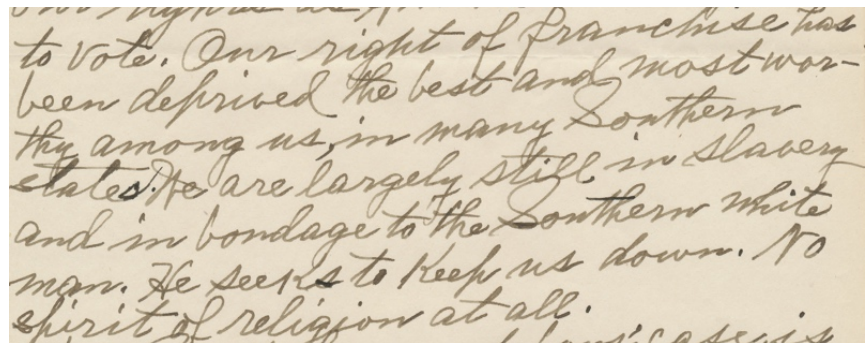 our rights as
to vote. Our right of franchise has
been deprived the best and most wor-
thy among us, in many Southern
states. We are largely still in slavery
and in bondage to the Southern white
man. He seeks to keep us down. No
spirit of religion at all.